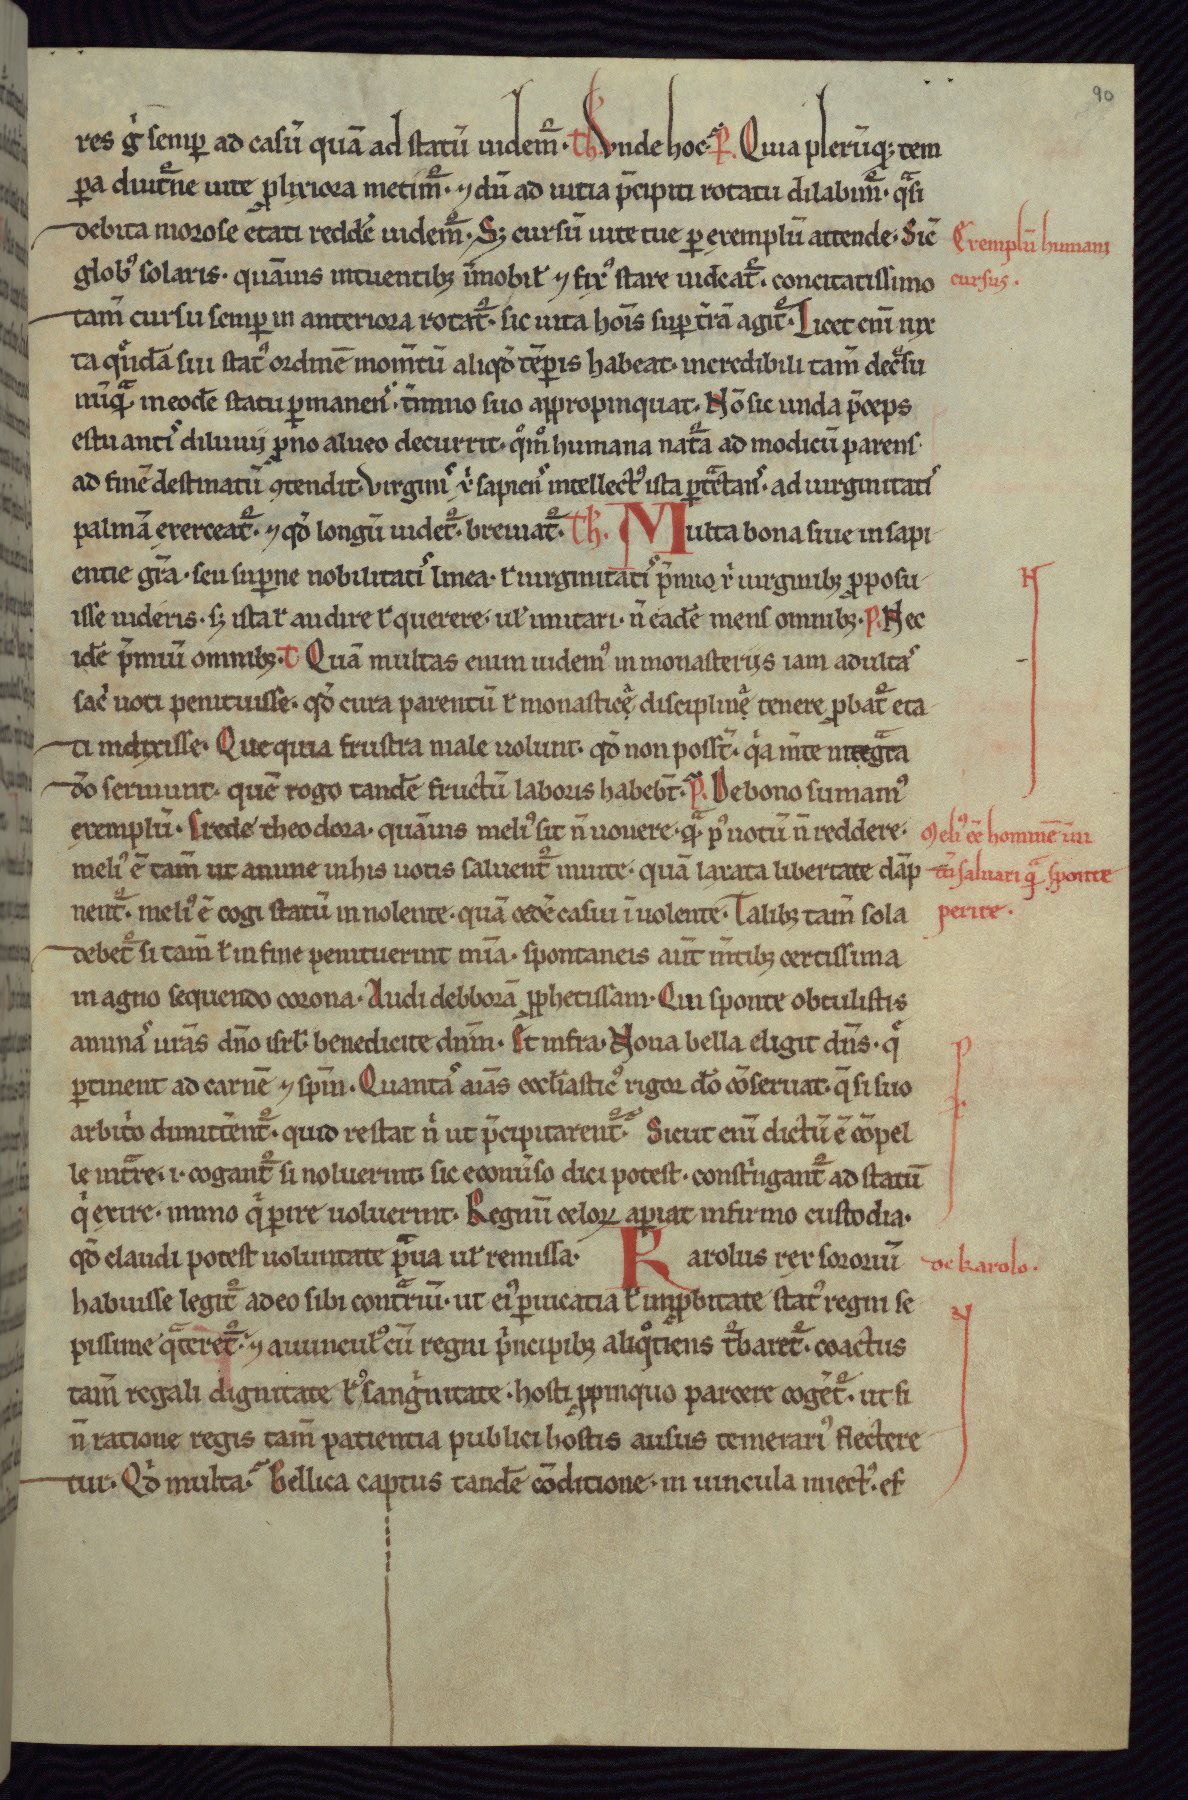 90
res g̊ semꝑ ad casū quā ad statū uidem̄. Th. Vnde hoc. P. Quia plerūq; tem
ꝑa diuitne uite ꝓlixiora metim̄. ⁊ dū ad uitia p̄cipiti rotatu dilabim̄. q̄si
debita morose etati reddē uidem̄. Sꝫ cursū uite tue ꝑ exemplū attende. Sic̄
Exemplū humani
cursus.
globꝰ solaris. quāuis intuentibꝫ īmobil̵ ⁊ fixꝰ stare uideat̄. concitatissimo
tam̄ cursu semꝑ in anteriora rotat̄. sic uita hoīs suꝑ t̄rā agit̄. Licet enī iux
ta q̄ndā sui statꝰ ordinē mom̄tū aliqd̄ tēꝑis habeat. incredibili tam̄ dec̄su
nūq̄ in eodē statu ꝑmanens. t̄mino suo appropinquat. Nō sic unda p̄ceps
estuantis diluuij ꝓno alueo decurrit. qͦmͦ humana nat̄a ad modicū parens.
ad finē destinatū ꝯtendit. Virginis ẜ sapiens intellectꝰ ista ꝑt̄ctans. ad uirginitatis
palmā exerceat̄. ⁊ qd̄ longū uidet̄. breuiat̄. Th. Multa bona siue in sapi
entie gr̄a. seu suꝑne nobilitatis linea. ł uirginitatis p̄mio ẜ uirginibꝫ ꝓposu
isse uideris. sꝫ ista ł audire ł querere. ul̵ imitari. n̄ eadē mens omnibꝫ. P. Nec
idē p̄miū omnibꝫ. T Quā multas enim uidemꝰ in monasterijs iam adultas
sac̄ uoti penituisse. qd̄ cura parentū ł monasticę disciplinę tenere ꝓbat̄ eta
ti indixisse. Que quia frustra male uolunt. qd̄ non possт̄. q̄a m̄te inteḡta
dō seruiunt. quē rogo tandē fructū laboris habebт̄. P. De bono sumamꝰ
exemplū. Crede theodora. quāuis meliꝰ sit n̄ uouere. q̄ pꝰ uotū n̄ reddere.
Meliꝰ eē hominē inui
tū saluari q̄ sponte
perire.
meliꝰ ē tam̄ ut anime in his uotis saluent̄ inuite. quā laxata libertate dāp
nent̄. meliꝰ ē cogi statū in nolente. quā cedē casui ī uolente. Talibꝫ tam̄ sola
debet̄ si tam̄ ł in fine penituerint mīa. spontaneis aut̄ m̄tibꝫ certissima
in agno sequendo corona. Audi debborā ꝓphetissam. Qui sponte obtulistis
animas ur̄as dn̄o isrl̵. benedicite dnm̄. Et infra. Noua bella eligit dn̄s. q̄
ꝑtinent ad carnē ⁊ spm̄. Quantas aīas eccl̵iasticꝰ rigor dō cōseruat. q̄ si suo
arbit̊o dimittent̄. quid restat n̊ ut p̄cipitarent̄. Sicut enī dictū ē cōpel
le int̄re. i. cogant̄ si noluerint. sic econūso dici potest. const̊ngant̄ ad statū
q̊ exire. immo q̊ ꝑire uoluerint. Regnū celoꝝ aꝑiat infirmo custodia.
qd̄ claudi potest uoluntate p̄ua ul̵ remissa. Karolus rex sororiū
de karolo.
habuisse legit̄ adeo sibi cont̄riū. ut eiꝰ ꝑuicatia ł inꝓbitate statꝰ regni se
pissime q̄teret̄. ⁊ auunculꝰ cū regni p̊ncipibꝫ aliq̊tiens t̄baret̄. coactus
tam̄ regali dignitate ł sang̊nitate. hosti ꝓpinquo parcere coget̄. ut si
n̄ ratione regis tam̄ patientia publici hostis ausus temerariꝰ flectere
tur. Qd̄ multa. Bellica captus tandē cōditione. in uincula iniectꝰ. ef